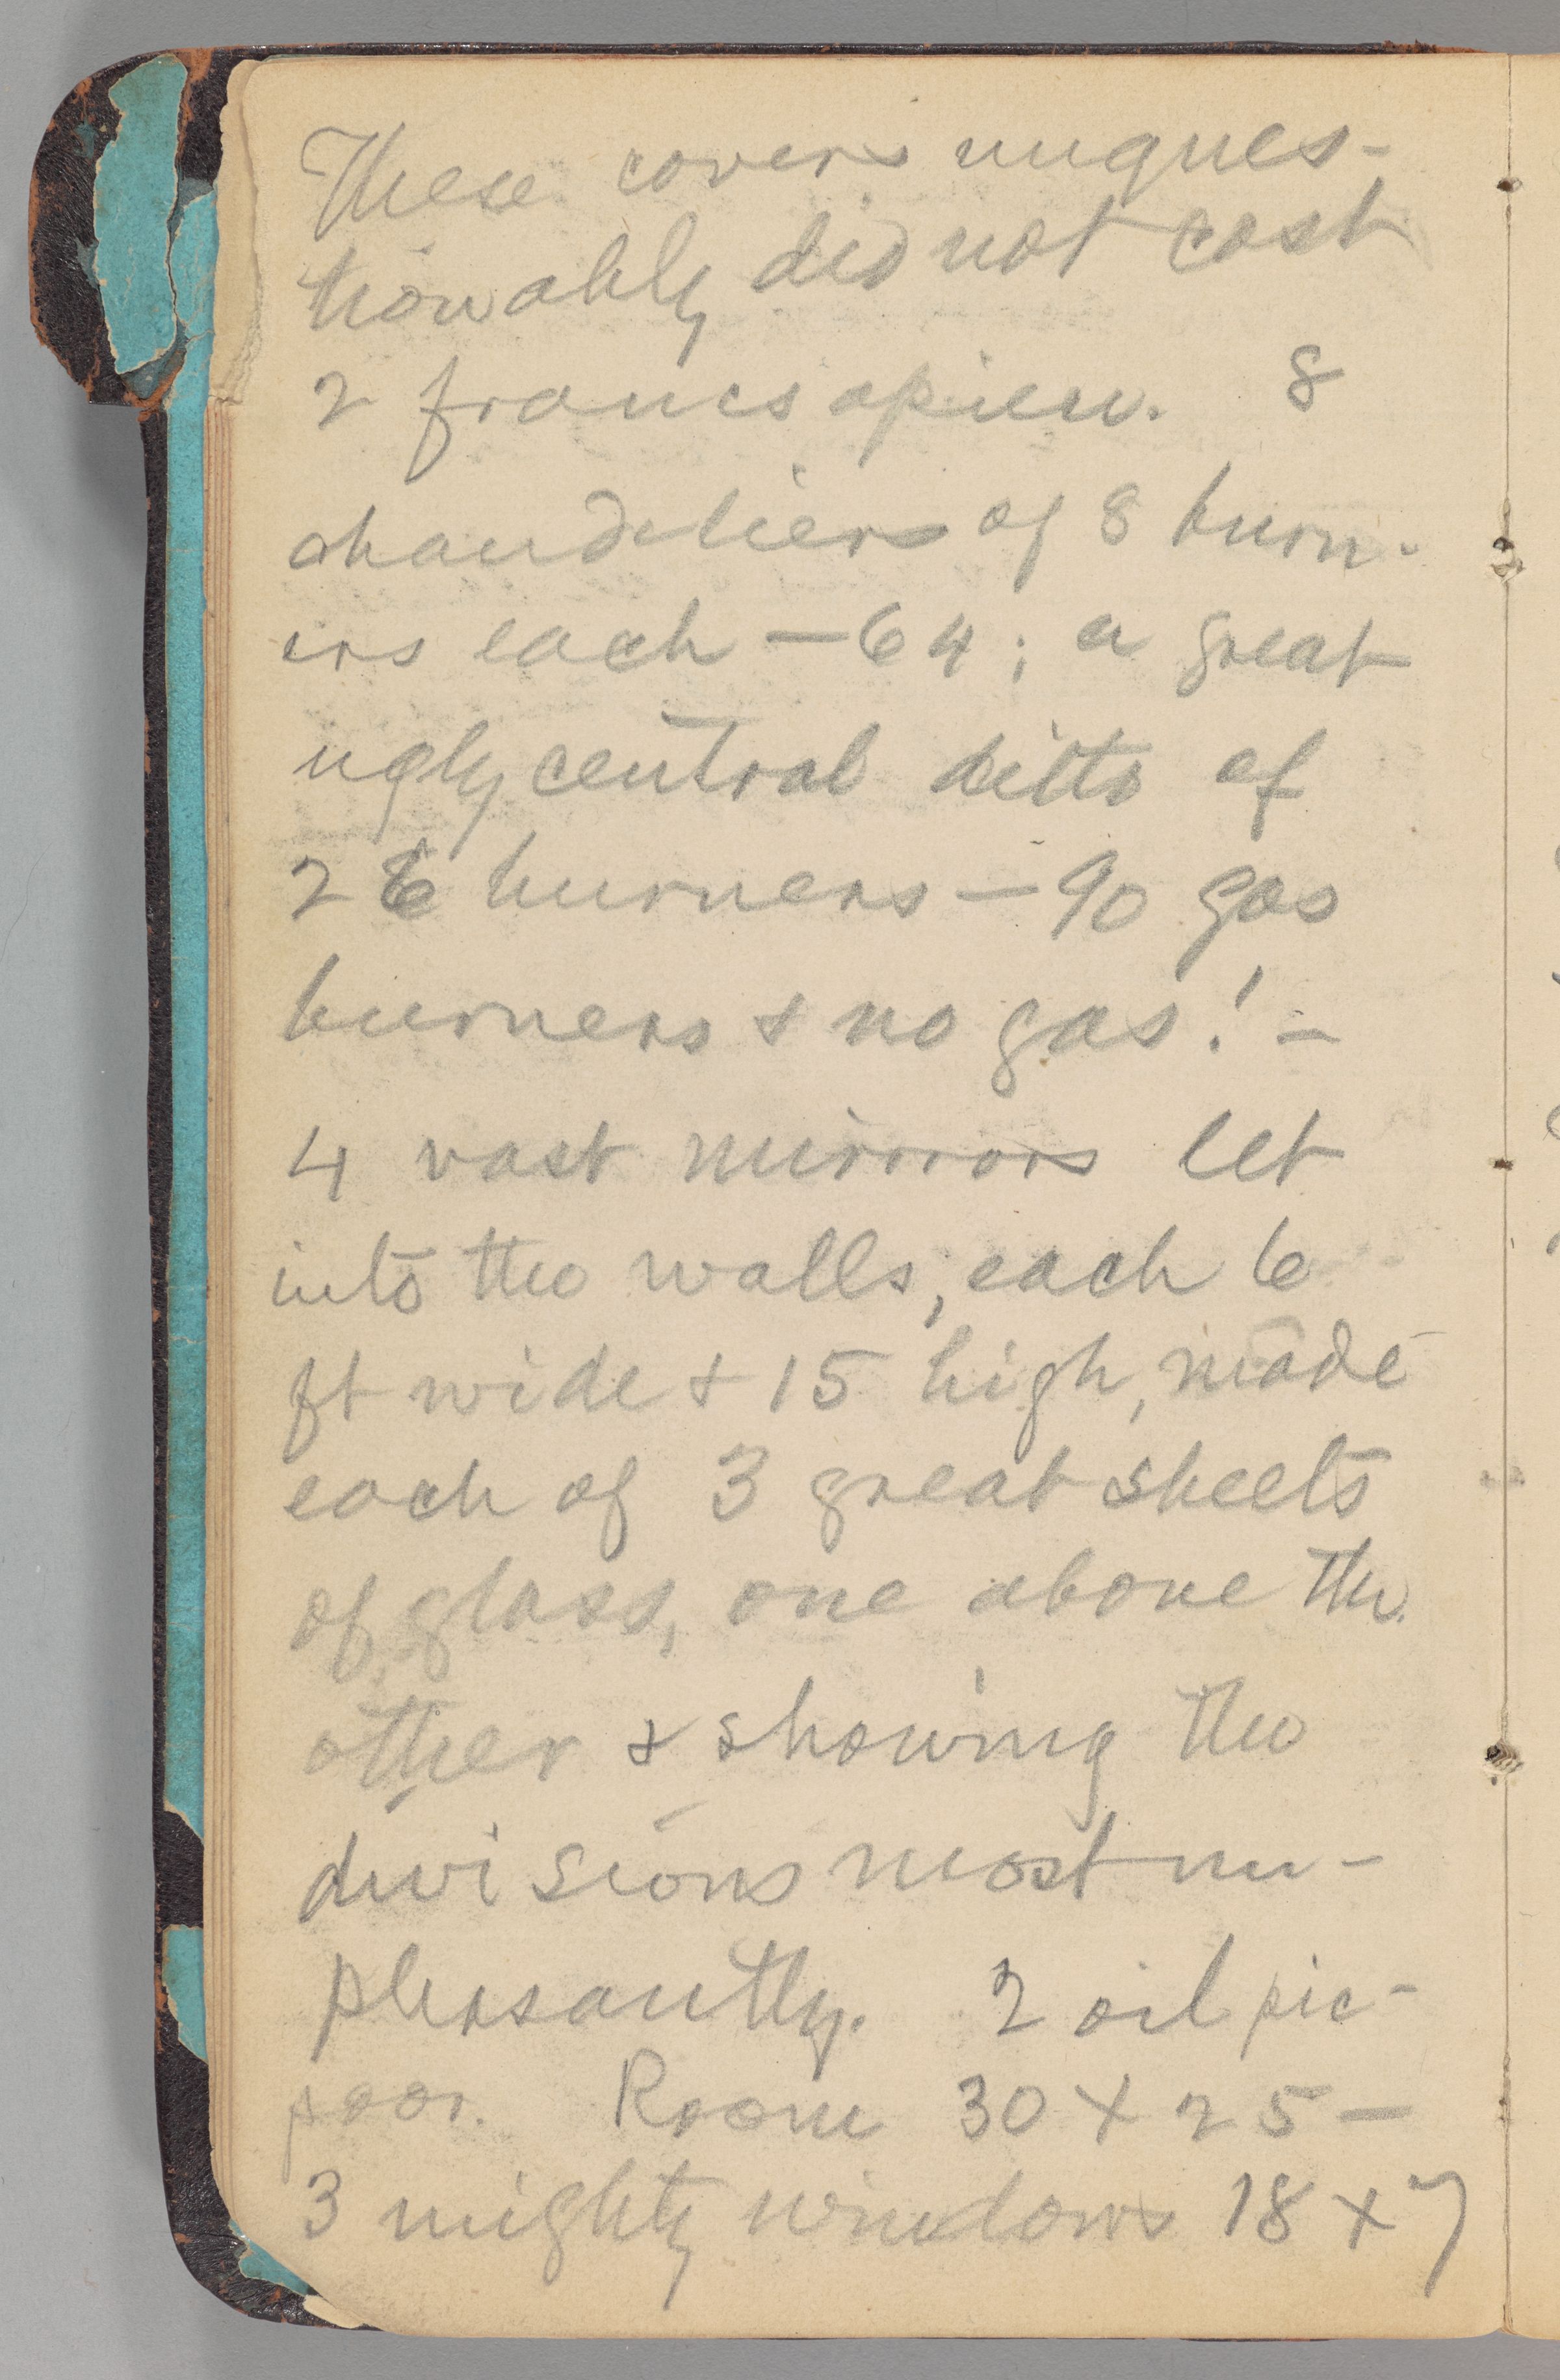 These covers unques-
tionably did not cost
2 francs apiece. 8
chandeliers of 8 burn-
ers each — 64; a great
ugly central ditto of
26 burners — 90 gas
burners & no gas! —
4 vast mirrors let
into the walls, each 6
ft wide & 15 high, made
each of 3 great sheets
of glass, one above the
other & showing the
divisions most un-
pleasantly. 2 oil pic-
poor. Room 30 x 25 —
3 mighty windows 18 x 7